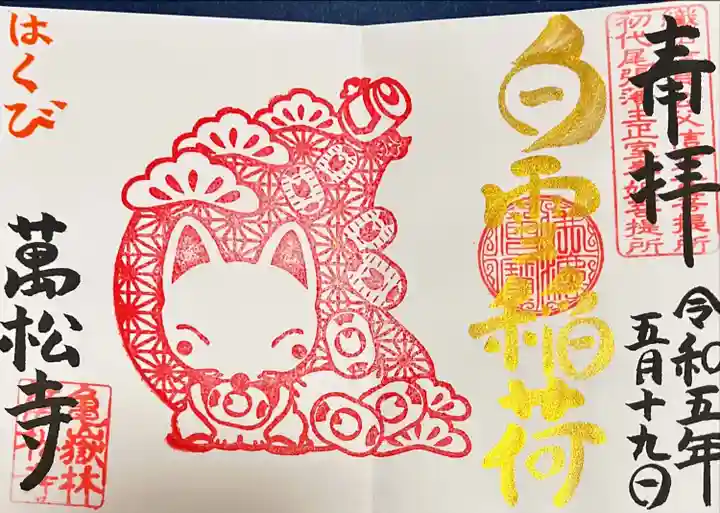 奉拝
令和五年
五月十九日
初代尾張藩主正室
菩提所
白雪稲荷
はくび
萬松寺
亀嶽林